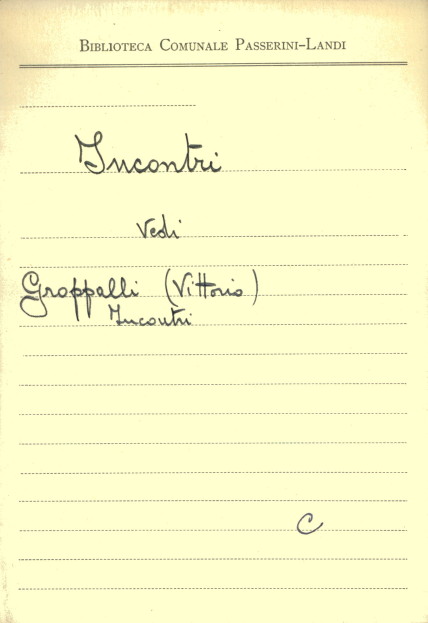 Biblioteca Comunale Passerini-Landi
Incontri
Vedi
Groppalli (Vittorio)
Incontri
C